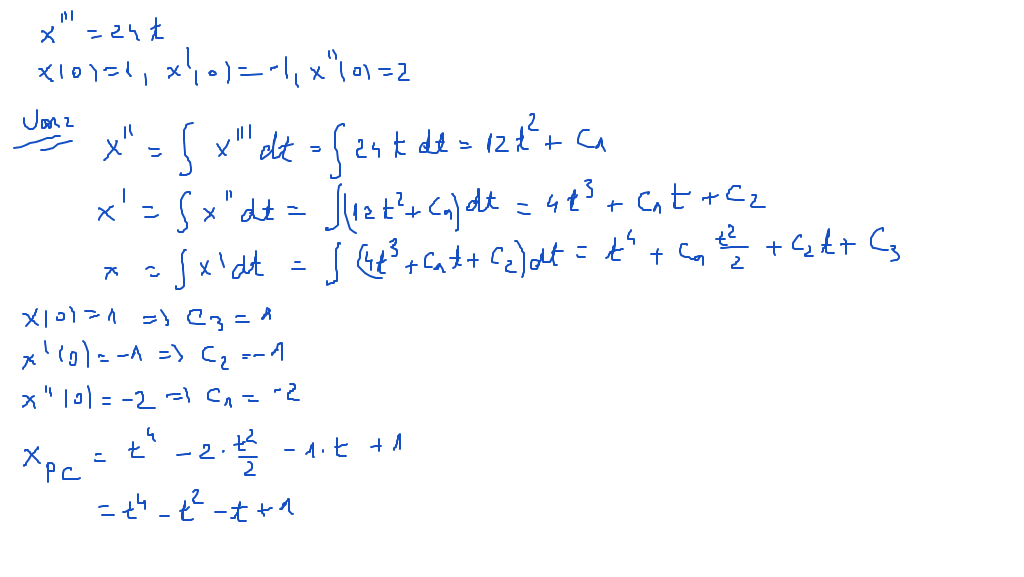 x''' = 24t
x(0)=1, x'(0)=-1, x''(0)=2
x'' = ∫ x''' dt = ∫ 24 t dt = 12t² + C₁
x' = ∫ x'' dt = ∫(12t² + C₁)dt = 4t³ + C₁t + C₂
x = ∫ x' dt = ∫ (4t³ + C₁t + C₂)dt = t⁴ + C₁ t²/2 + C₂t + C₃
x(0) = 1 => C₃ = 1
x'(0) = -1 => C₂ = -1
x''(0) = -2 => C₁ = -2
x_PC = t⁴ - 2 · t²/2 - 1·t + 1
= t⁴ - t² - t + 1